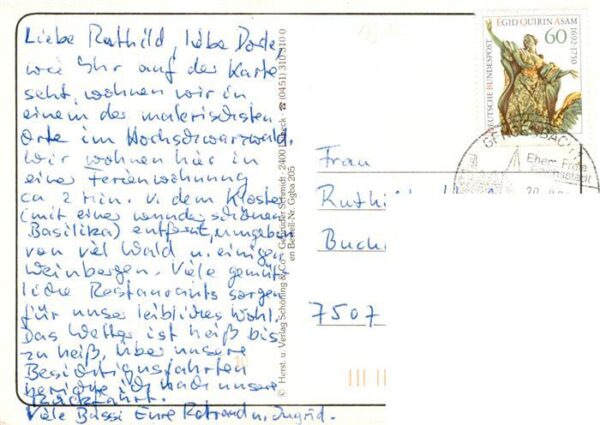 Liebe Rathild, liebe Dode,
wie Ihr auf der Karte
seht, wohnen wir in
einem der malerischsten
Orte im Hochschwarzwald.
Wir wohnen hier in
einer Ferienwohnung
ca 2 min. v. dem Kloster
(mit einer wunderschönen
Basilika) entfernt, umgeben
von viel Wald u. einigen
Weinbergen. Viele gemüt-
liche Restaurants sorgen
für unser leibliches Wohl.
Das Wetter ist heiß bis
zu heiß, über unsere
Besichtigungsfahrten
berichte ich nach unserer
Rückfahrt.
Viele Bussi Eure Rotraud u. Ingrid.
© Horst u. Verlag Schöning & Co · Gebrüder Schmidt · 2400 Lübeck · ☎ (0451) 310310 0
Bestell-Nr. Ggba 205
EGID QUIRIN ASAM
1692-1750
60
DEUTSCHE BUNDESPOST
GENGENBACH
Ehem. Freie
Reichsstadt
Frau
Ruthi
Buch
7507